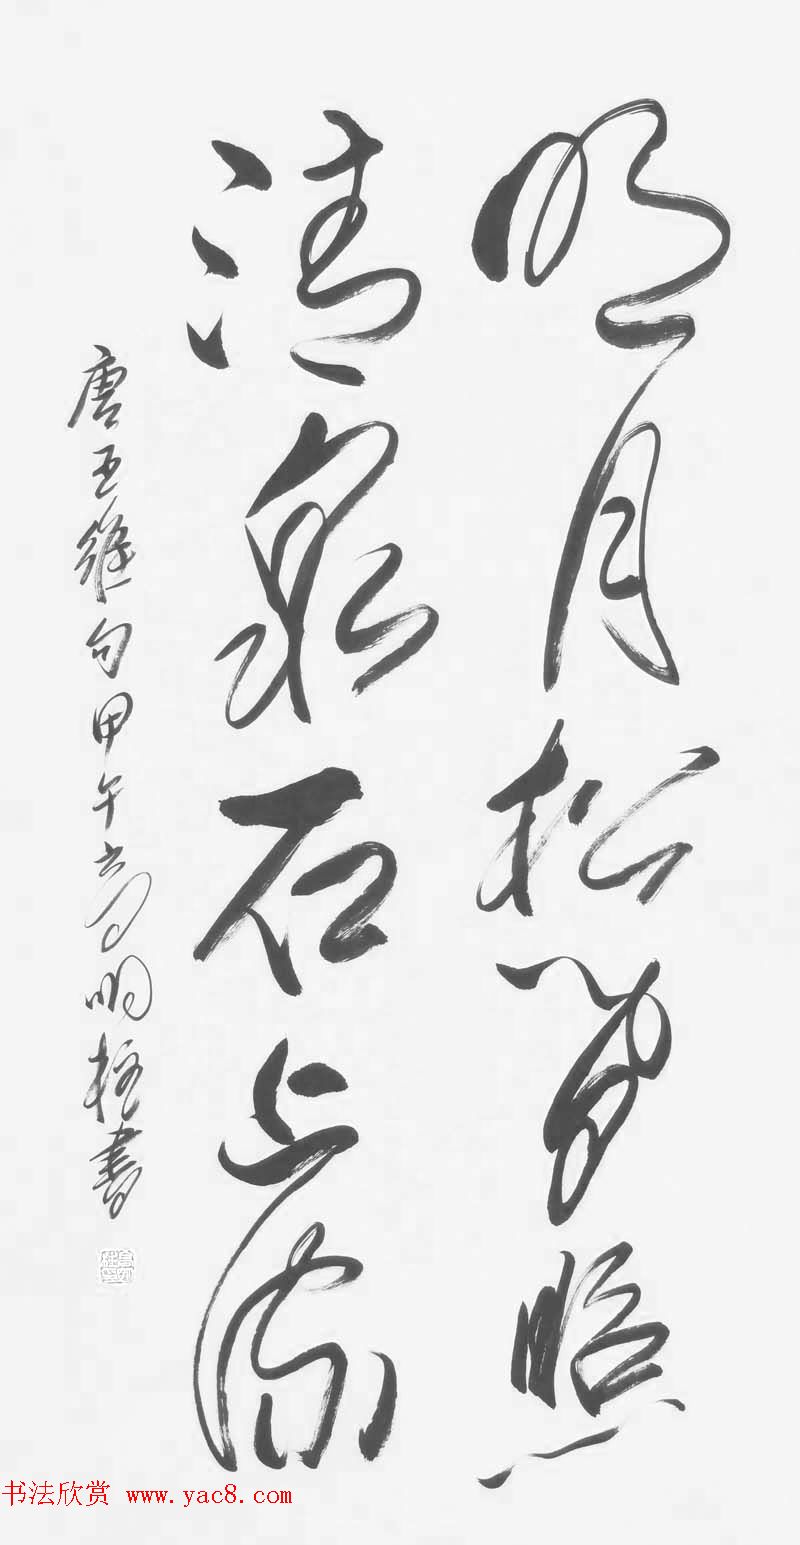 明月松间照
清泉石上流
唐王维句甲午高明柱书
书法欣赏 www.yac8.com